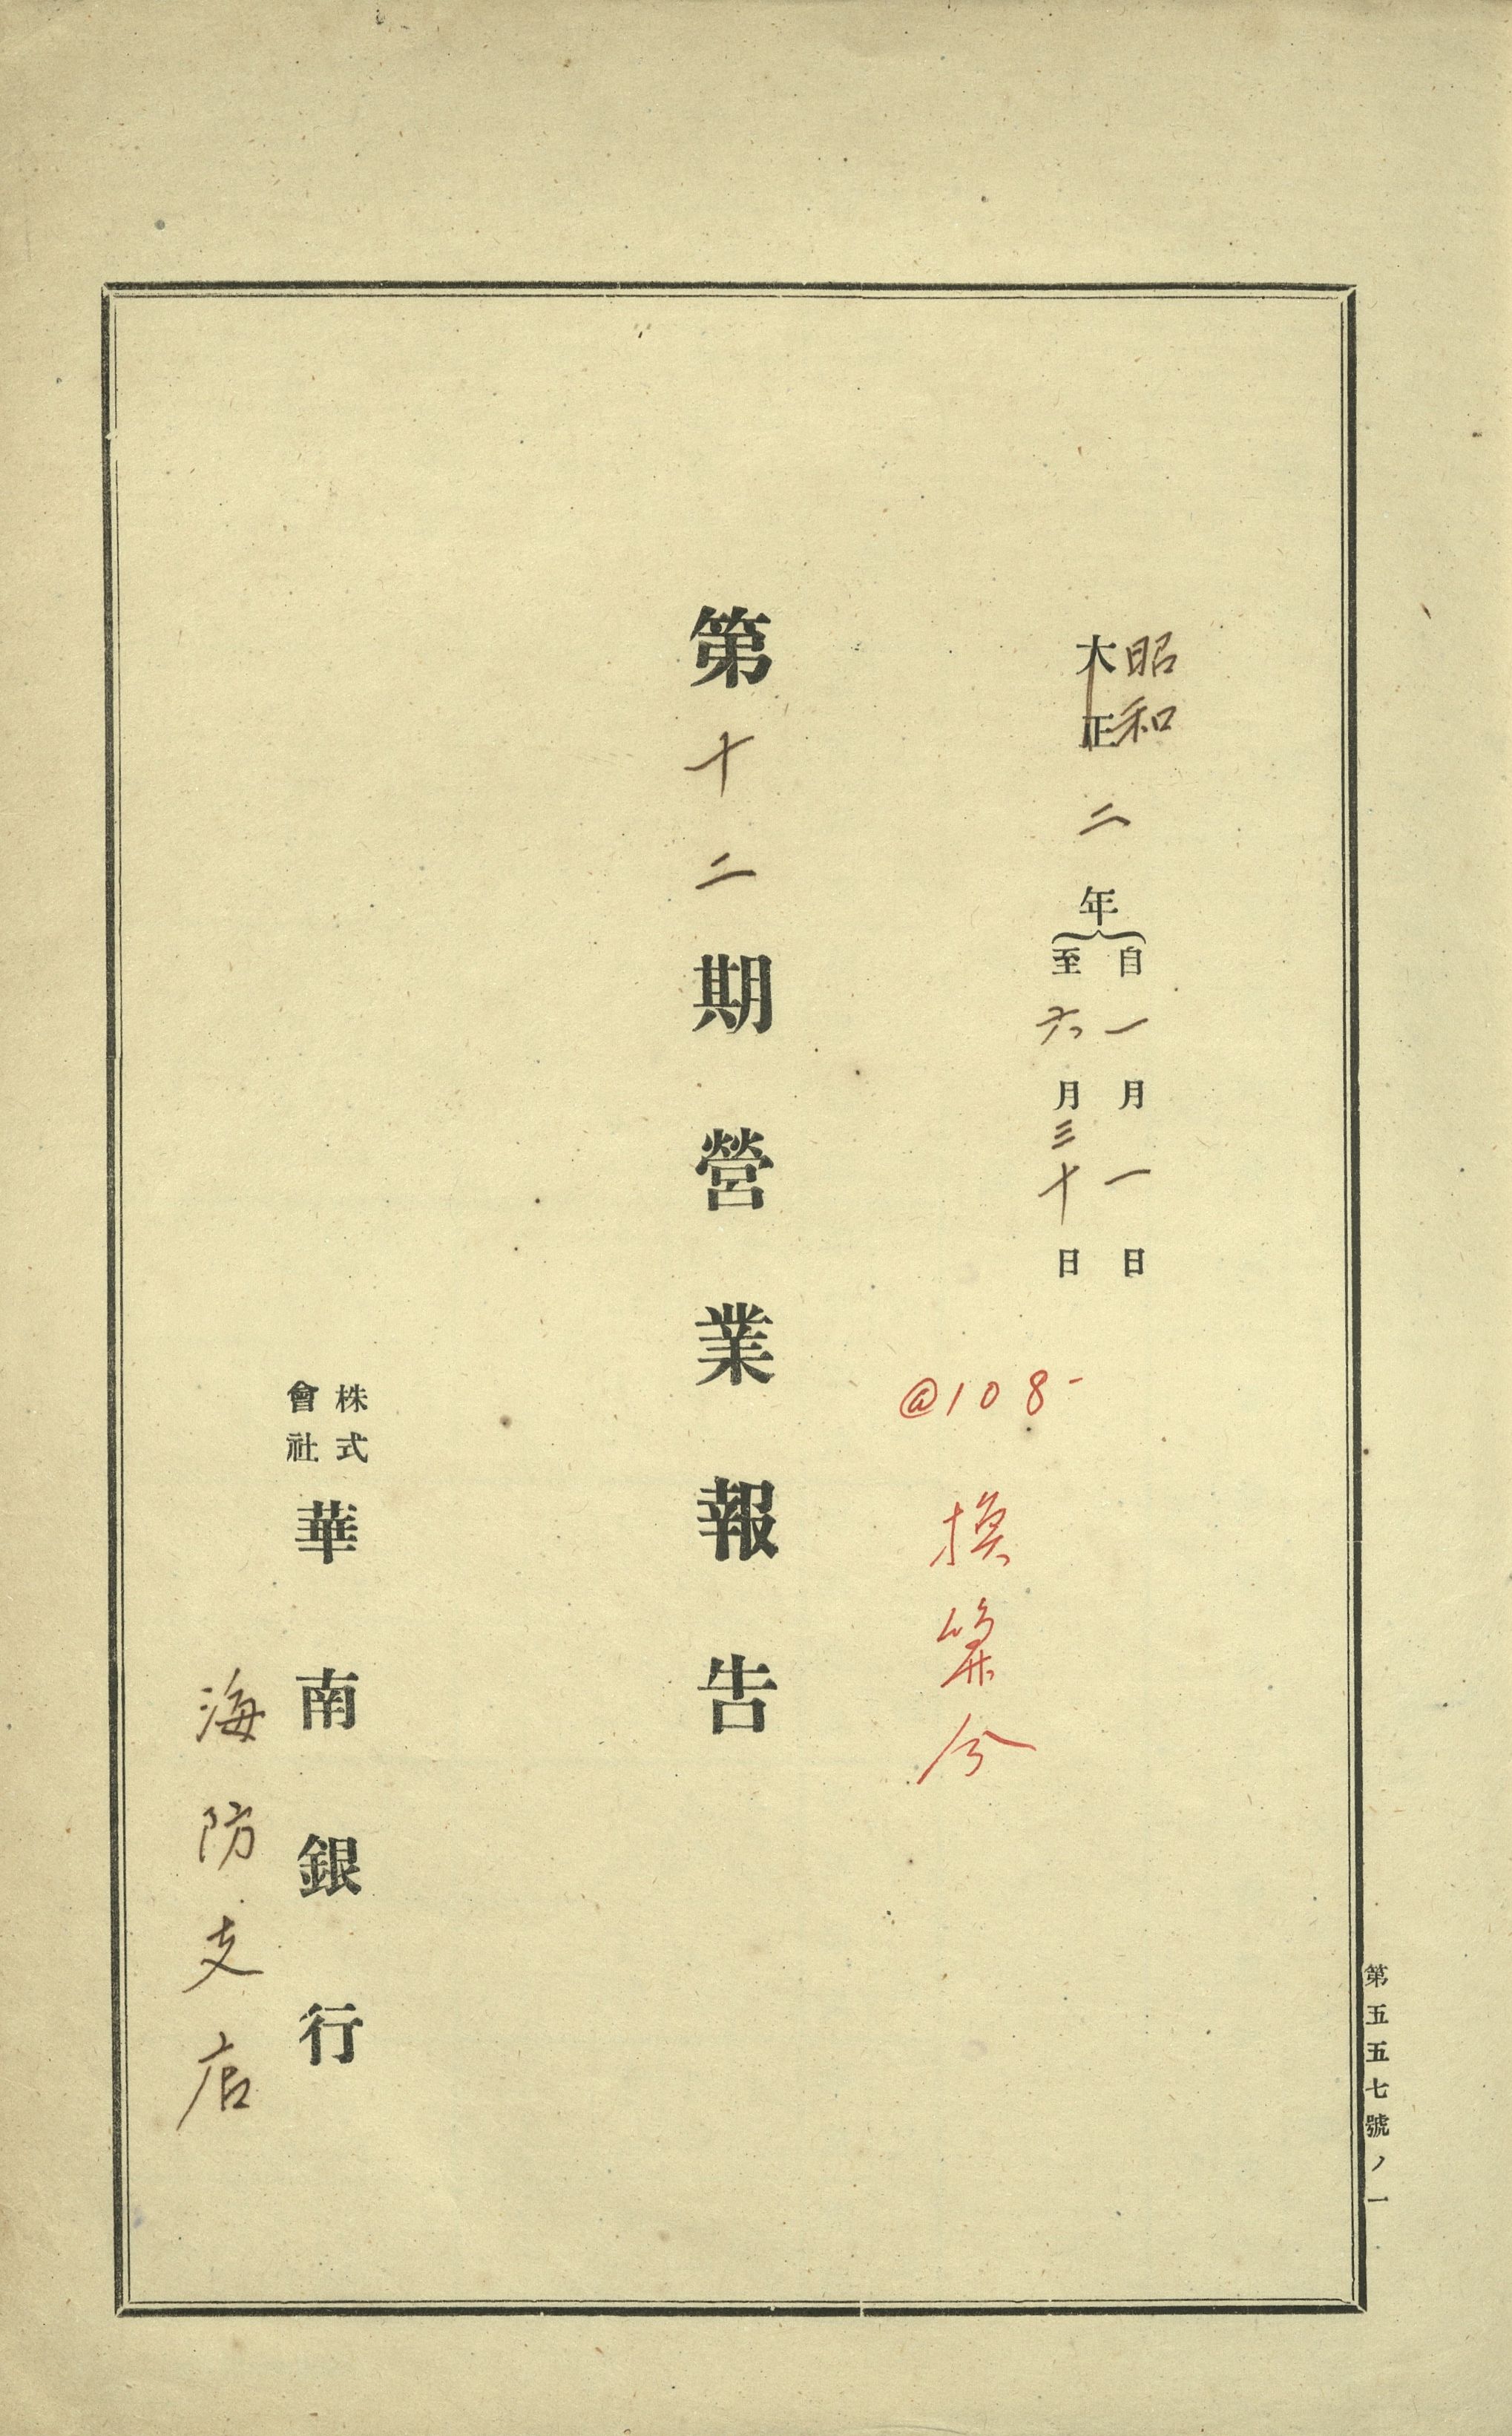 第五五七號ノ一
昭和
大正二年
自一月一日
至六月三十日
@108-
換算分
第十二期營業報告
株式
會社
華南銀行
海防支店